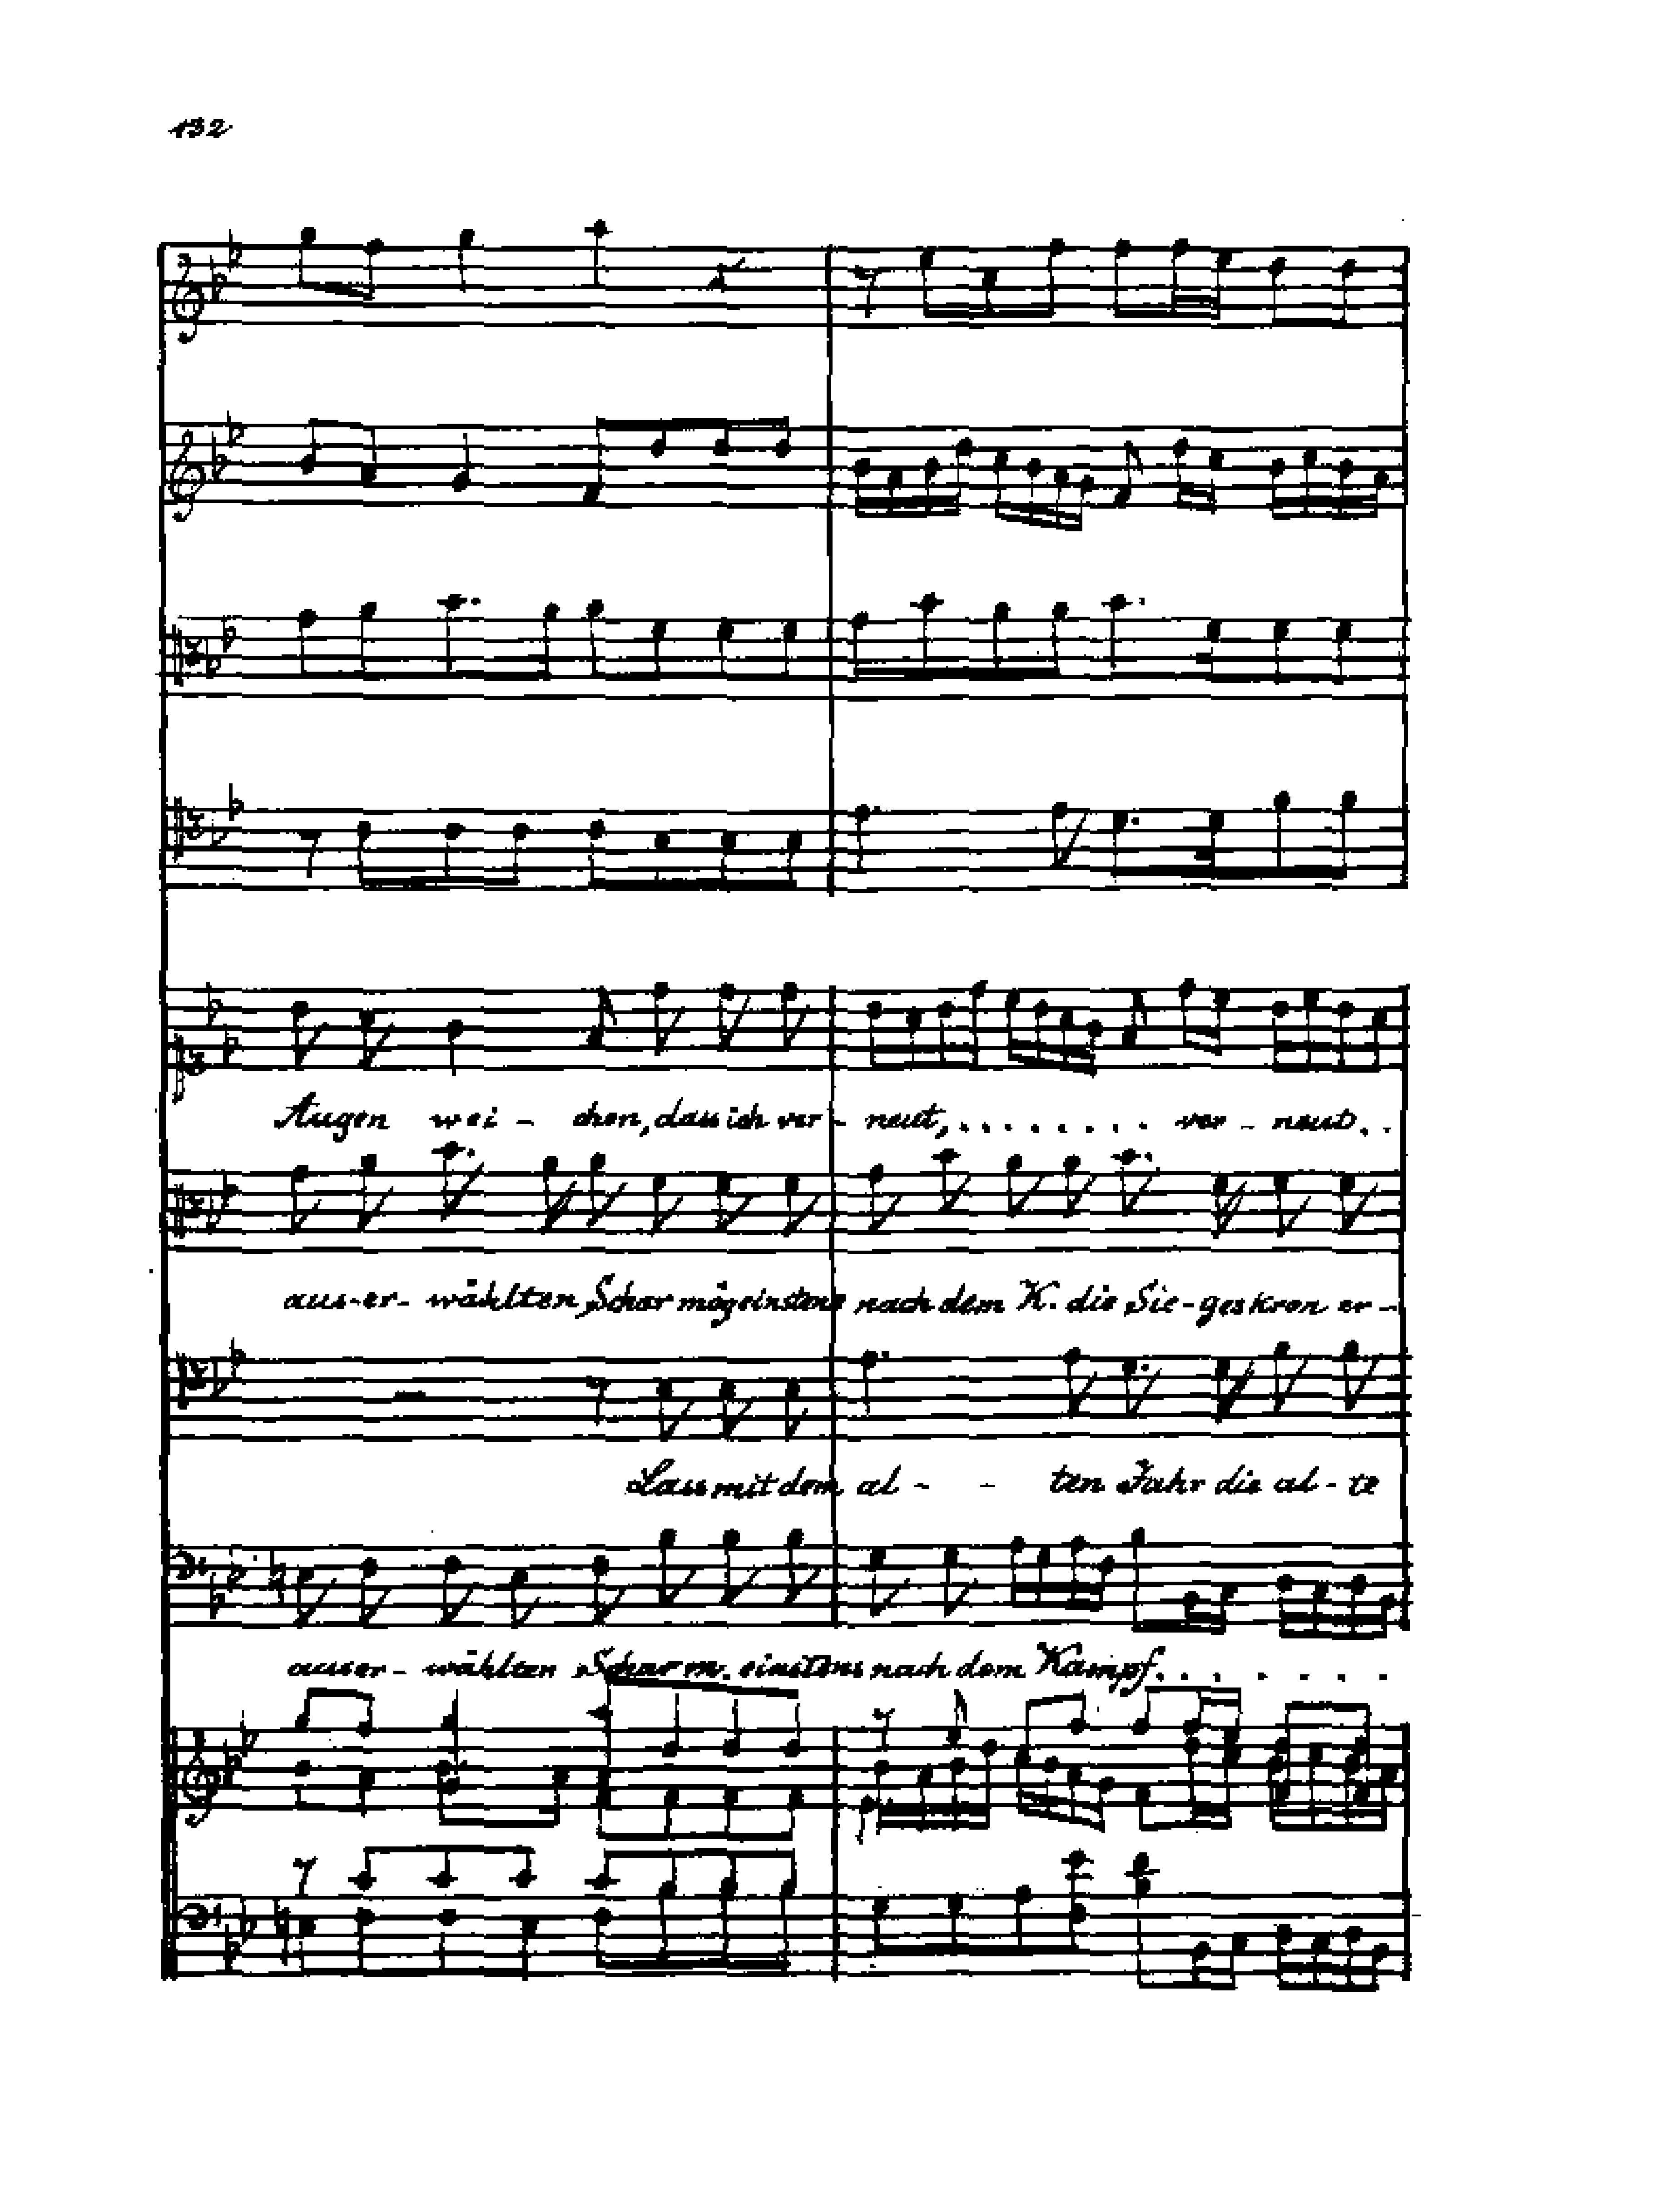 132
Augen wei - chen, dass ich ver - neut, . . . . . . . . ver - neut . .
aus-er- wählten Schar mög einstens nach dem K. die Sie-geskron er-
Lass mit dem al - - ten Jahr die al - te
auser- wählten Schar m. einstens nach dem Kampf . . . . . . . .